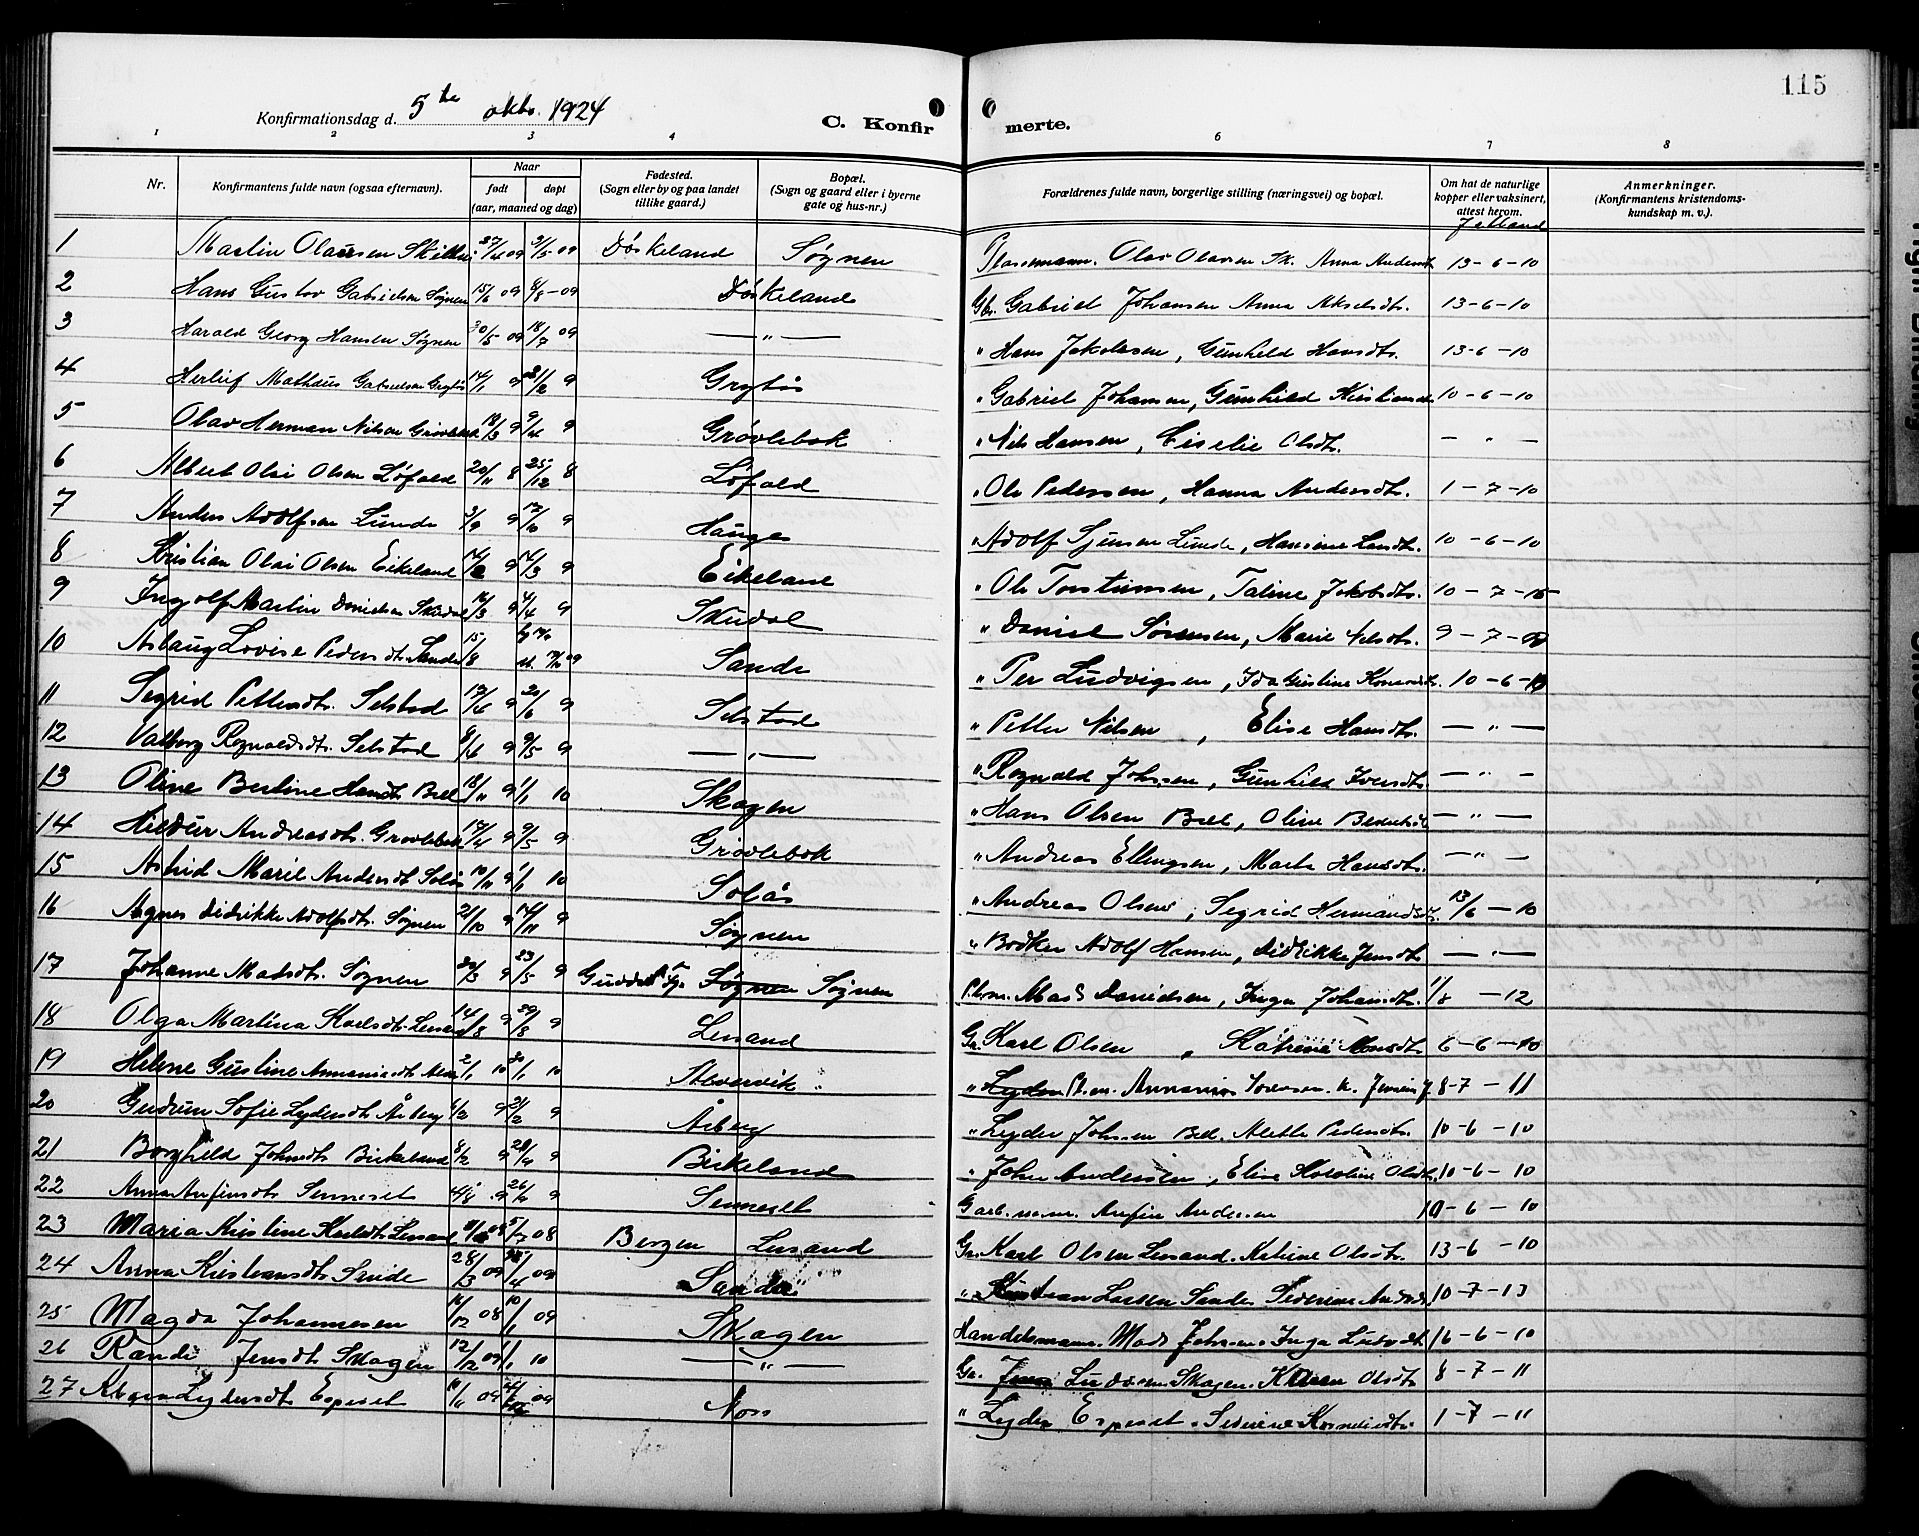 115
Konfirmationsdag d. 5te oktb. 1924
C. Konfirmerte.
1 2 3 4 6 7 8
Nr.
Konfirmantens fulde navn (ogsaa efternavn).
Naar
født døpt
(aar, maaned og dag)
Fødested.
(Sogn eller by og paa landet
tillike gaard.)
Bopæl.
(Sogn og gaard eller i byerne
gate og hus-nr.)
Forældrenes fulde navn, borgerlige stilling (næringsvei) og bopæl.
Om hat de naturlige
kopper eller vaksinert,
attest herom.
Anmerkninger.
(Konfirmantens kristendoms-
kundskap m. v.).
1 Martin Olaisen 27/4 09 31/5 09 Døskeland Søgnen Plassemann. Olav Olavsen Sk. Anna Andersdt. 13-6-10
2 Hans Gustav Gabrielsen Søgnen 15/6 09 8/8-09 Døskeland Gbr. Gabriel Johansen Anna Akseldt. 13-6-10
3 Harald Georg Hansen Søgnen 30/5 09 18/7 09 — " — " Hans Jakobsen, Gunhild Hansdt. 13-6-10
4 Herleif Mathæus Gabrielsen Grytøs 14/1 9 9 Grytøs " Gabriel Johansen, Gunhild Kristiansdt. 10-6-10
5 Olav Herman Nilsen Grøvlebok 19/3 9 9/4 9 Grøvlebok " Nils Hansen, Olsdt. — " —
6 Albert Olai Olsen Løfald 20/11 8 25/12 8 Løfald " Ole Pedersen, Hanna Andersdt. 1-7-10
7 Anders Adolfsen Lunde 3/9 9 17/10 9 Hauge " Adolf Lunde, Hansine 10-6-10
8 Kristian Olai Olsen Eikeland 9 14/3 9 Eikeland " Ole Torsteinsen, Taline Jakobsdt. 10-7-15
9 Ingolf Martin Danielsen Skudal 16/3 9 4/4 9 Skudal " Daniel Sørensen, Marie Nilsdt. 9-7-09
10 Aslaug Lovise Pedersdt. Sande 15/8 09 Sande " Per Ludvigsen, Ida Gustine 10-6-10
11 Sigrid Pettersdt. Selstad 17/4 9 20/6 9 Selstad " Petter Nilsen, Elise Hansdt. — " —
12 Valborg Ragnvaldsdt. Selstad 8/4 9 9/5 9 — " — " Ragnvald Johnsen, Gunhild Iversdt. — " —
13 Oline Bertine Hansdt. Bell 18/11 9 1/1 10 Skogen " Hans Olsen Bell, Oline — " —
14 Hildur Andreasdt. Grøvlebok 17/4 9 9/5 9 Grøvlebok " Andreas Ellingsen, Marta Hansdt. — " —
15 Astrid Marie Andersdt. Solås 10/11 9 1/1 10 Solås " Andreas Olsen, Sigrid Hermansdt. 13/6-10
16 Agnes Didrikke Adolfsdt. Søgnen 21/10 9 14/11 9 Søgnen " Bødker Adolf Hansen, Didrikke Jensdt. — " —
17 Johanne Madsdt. Søgnen 9 23/5 9 Søgnen Søgnen Mads Danielsen, Inga Johansdt. 1/8-12
18 Olga Martina Karlsdt. Lesand 14/8 9 29/8 9 Lesand Gr. Karl Olsen, Katrine Monsdt. 6-6-10
19 Helene Gustine Annaniasdt. 2/1 10 10 " Annanias Sørensen 8-7-11
20 Gudrun Sofie Lydersdt. Åberg 6/2 9 21/2 9 Åberg " Lyder Johnsen Bell. Alette Pedersdt. 10-6-10
21 Borghild Johnsdt. Birkeland 8/2 9 9 Birkeland " John Andersen, Elise Karoline Olsdt. 10-6-10
22 Anna Anfinsdt. Senneset 9 9 Senneset Garb.mann. Anfin Andersen 10-6-10
23 Maria Kristine Karlsdt. Lesand 08 08 Bergen Lesand Gr. Karl Olsen Lesand. Katrine Olsdt. 13-6-10
24 Anna Kristiansdt. Sande 28/3 09 09 Sande " Kristian Larsen Sande Severine 10-7-13
25 Magda Johannesen 16/12 08 10/1 09 Skogen Handelsmann. Mads Johnsen. Inga Ludvdt. 16-6-10
26 Randi Jensdt. Skogen 12/12 09 1/1 10 — " — Gr. Jens Skogen. Olsdt. 8-7-11
27 Lydersdt. Espeset 09 09 Noss " Lyder Espeset. Severine Korneliusdt. 1-7-11